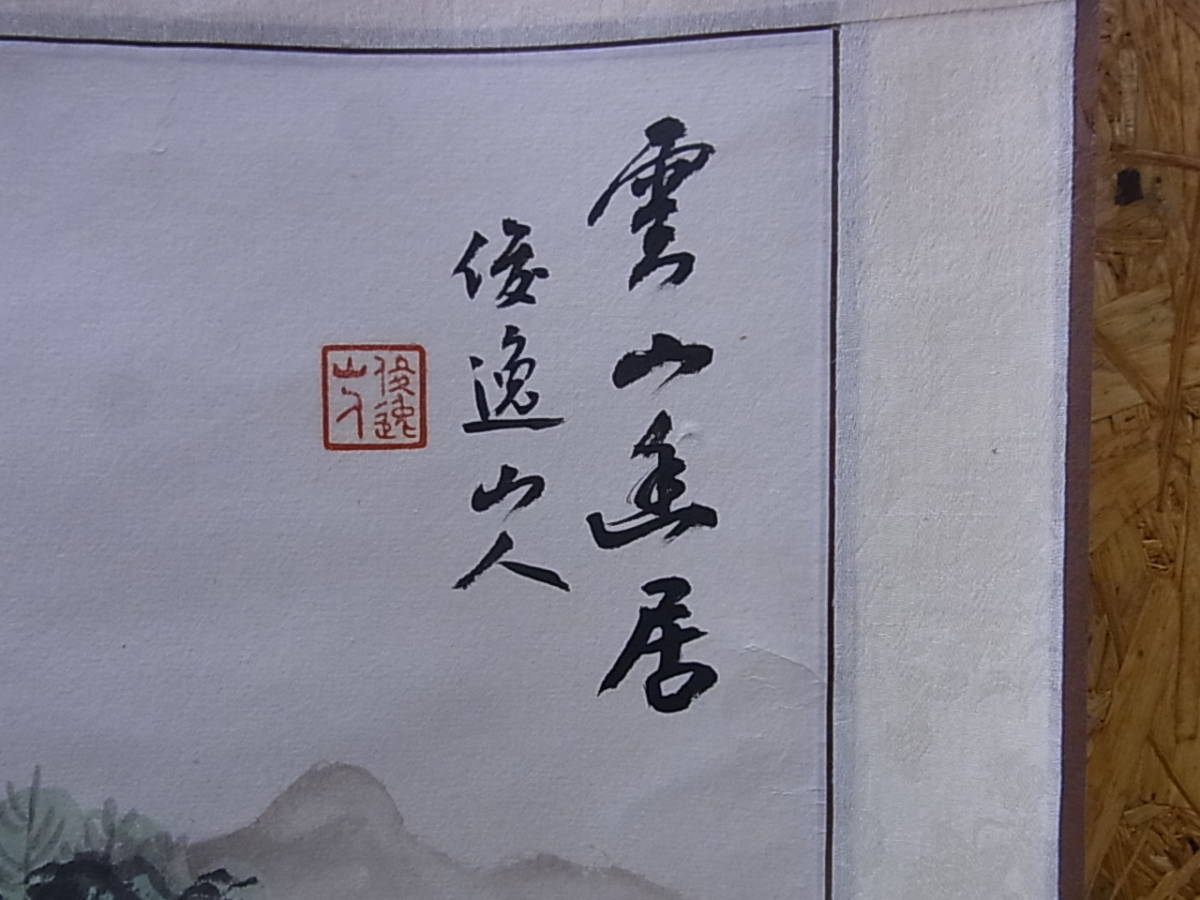 雲山幽居
俊逸山人
俊逸
山人